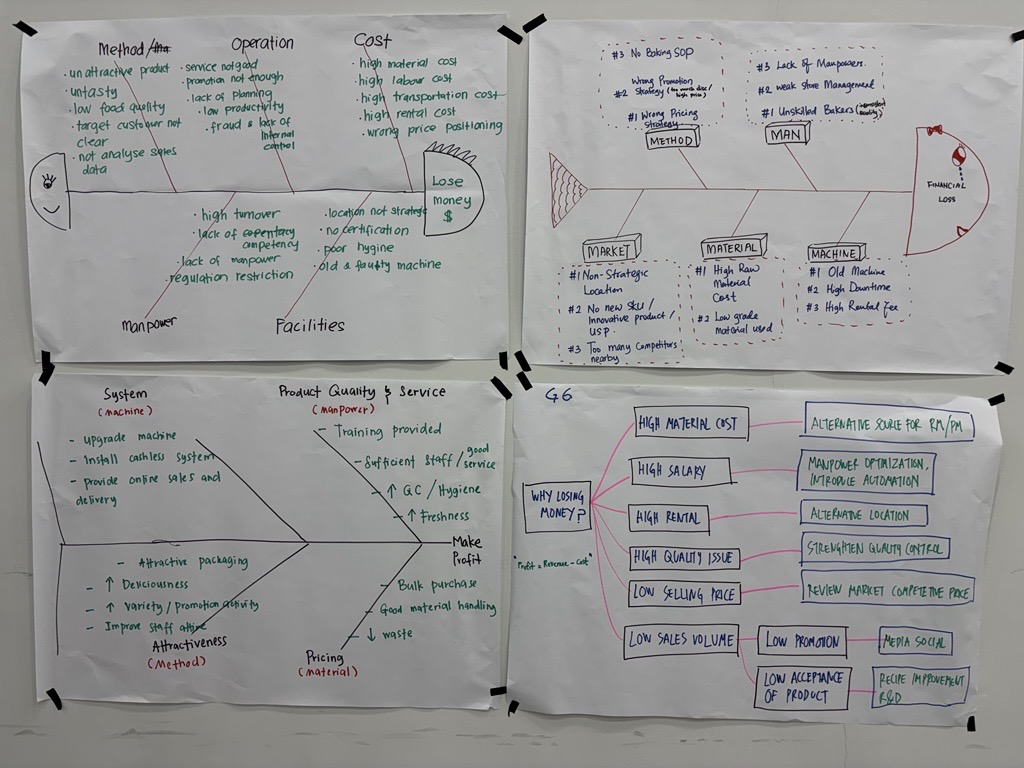 Method/
· unattractive product
· untasty
· low food quality
· target customer not
clear
· not analyse sales
data
Operation
· service not good
· promotion not enough
· lack of planning
· low productivity
· fraud & lack of
internal
control
Cost
· high material cost
· high labour cost
· high transportation cost
· high rental cost
· wrong price positioning
Lose
money
$
· high turnover
· lack of
competency
· lack of manpower
· regulation restriction
Manpower
· location not strategic
· no certification
· poor hygine
· old & faulty machine
Facilities
#3 No Baking SOP
Wrong Promotion
#2 Strategy (too much disc/
high price)
#1 Wrong Pricing
Strategy
METHOD
#3 Lack of Manpowers.
#2 weak store Management
#1 Unskilled Bakers (inconsistent
quality)
MAN
FINANCIAL
LOSS
MARKET
#1 Non-Strategic
Location
#2 No new SKU /
Innovative product /
USP.
#3 Too many Competitors
nearby
MATERIAL
#1 High Raw
Material
Cost
#2 Low grade
material used
MACHINE
#1 Old Machine
#2 High Downtime
#3 High Rental Fee
System
(machine)
- upgrade machine
- Install cashless system
- provide online sales and
delivery
Product Quality & Service
(manpower)
- Training provided
- Sufficient staff / good
service
- ↑ QC / Hygiene
- ↑ Freshness
Make
Profit
- Attractive packaging
- ↑ Deliciousness
- ↑ Variety / promotion activity
- Improve staff attire
Attractiveness
(Method)
- Bulk purchase
- Good material handling
- ↓ waste
Pricing
(material)
G6
WHY LOSING
MONEY?
"Profit = Revenue - Cost"
HIGH MATERIAL COST
ALTERNATIVE SOURCE FOR RM/PM
HIGH SALARY
MANPOWER OPTIMIZATION,
INTRODUCE AUTOMATION
HIGH RENTAL
ALTERNATIVE LOCATION
HIGH QUALITY ISSUE
STRENGHTEN QUALITY CONTROL
LOW SELLING PRICE
REVIEW MARKET COMPETITIVE PRICE
LOW SALES VOLUME
LOW PROMOTION
MEDIA SOCIAL
LOW ACCEPTANCE
OF PRODUCT
RECIPE IMPROVEMENT
R&D